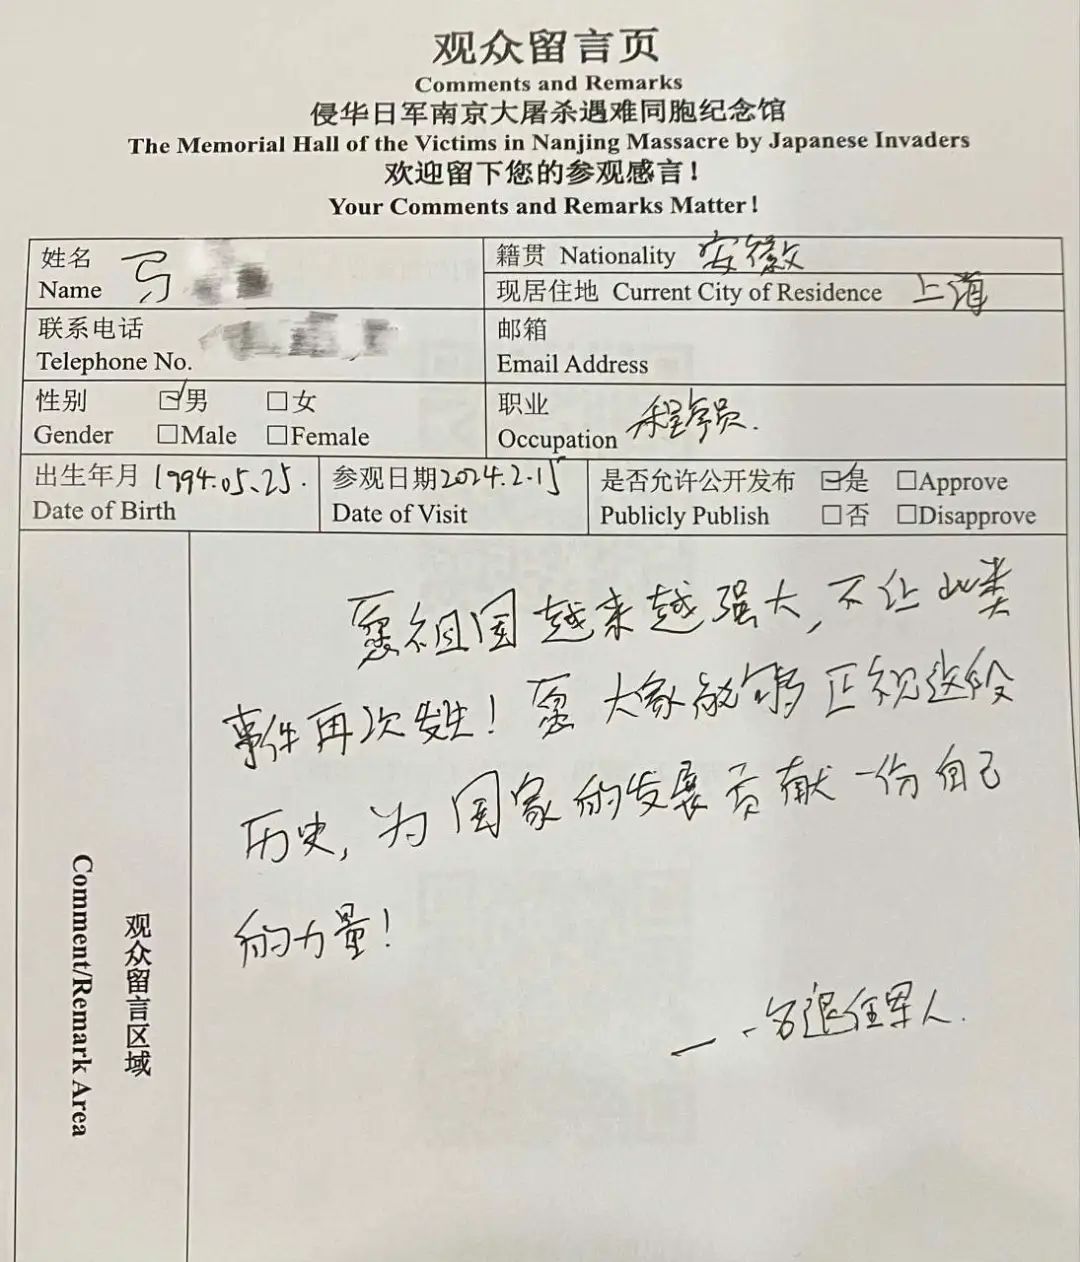 观众留言页
Comments and Remarks
侵华日军南京大屠杀遇难同胞纪念馆
The Memorial Hall of the Victims in Nanjing Massacre by Japanese Invaders
欢迎留下您的参观感言！
Your Comments and Remarks Matter！
姓名
Name
籍贯 Nationality 安徽
现居住地 Current City of Residence 上海
联系电话
Telephone No.
邮箱
Email Address
性别 □男 □女
Gender □Male □Female
职业
Occupation 程序员.
出生年月 1994.05.25.
Date of Birth
参观日期 2024.2.15
Date of Visit
是否允许公开发布 □是 □Approve
Publicly Publish □否 □Disapprove
观众留言区域
Comment/Remark Area
愿祖国越来越强大，不让此类
事件再次发生！愿大家能够正视这段
历史，为国家的发展贡献一份自己
的力量！
— 一名退任军人.